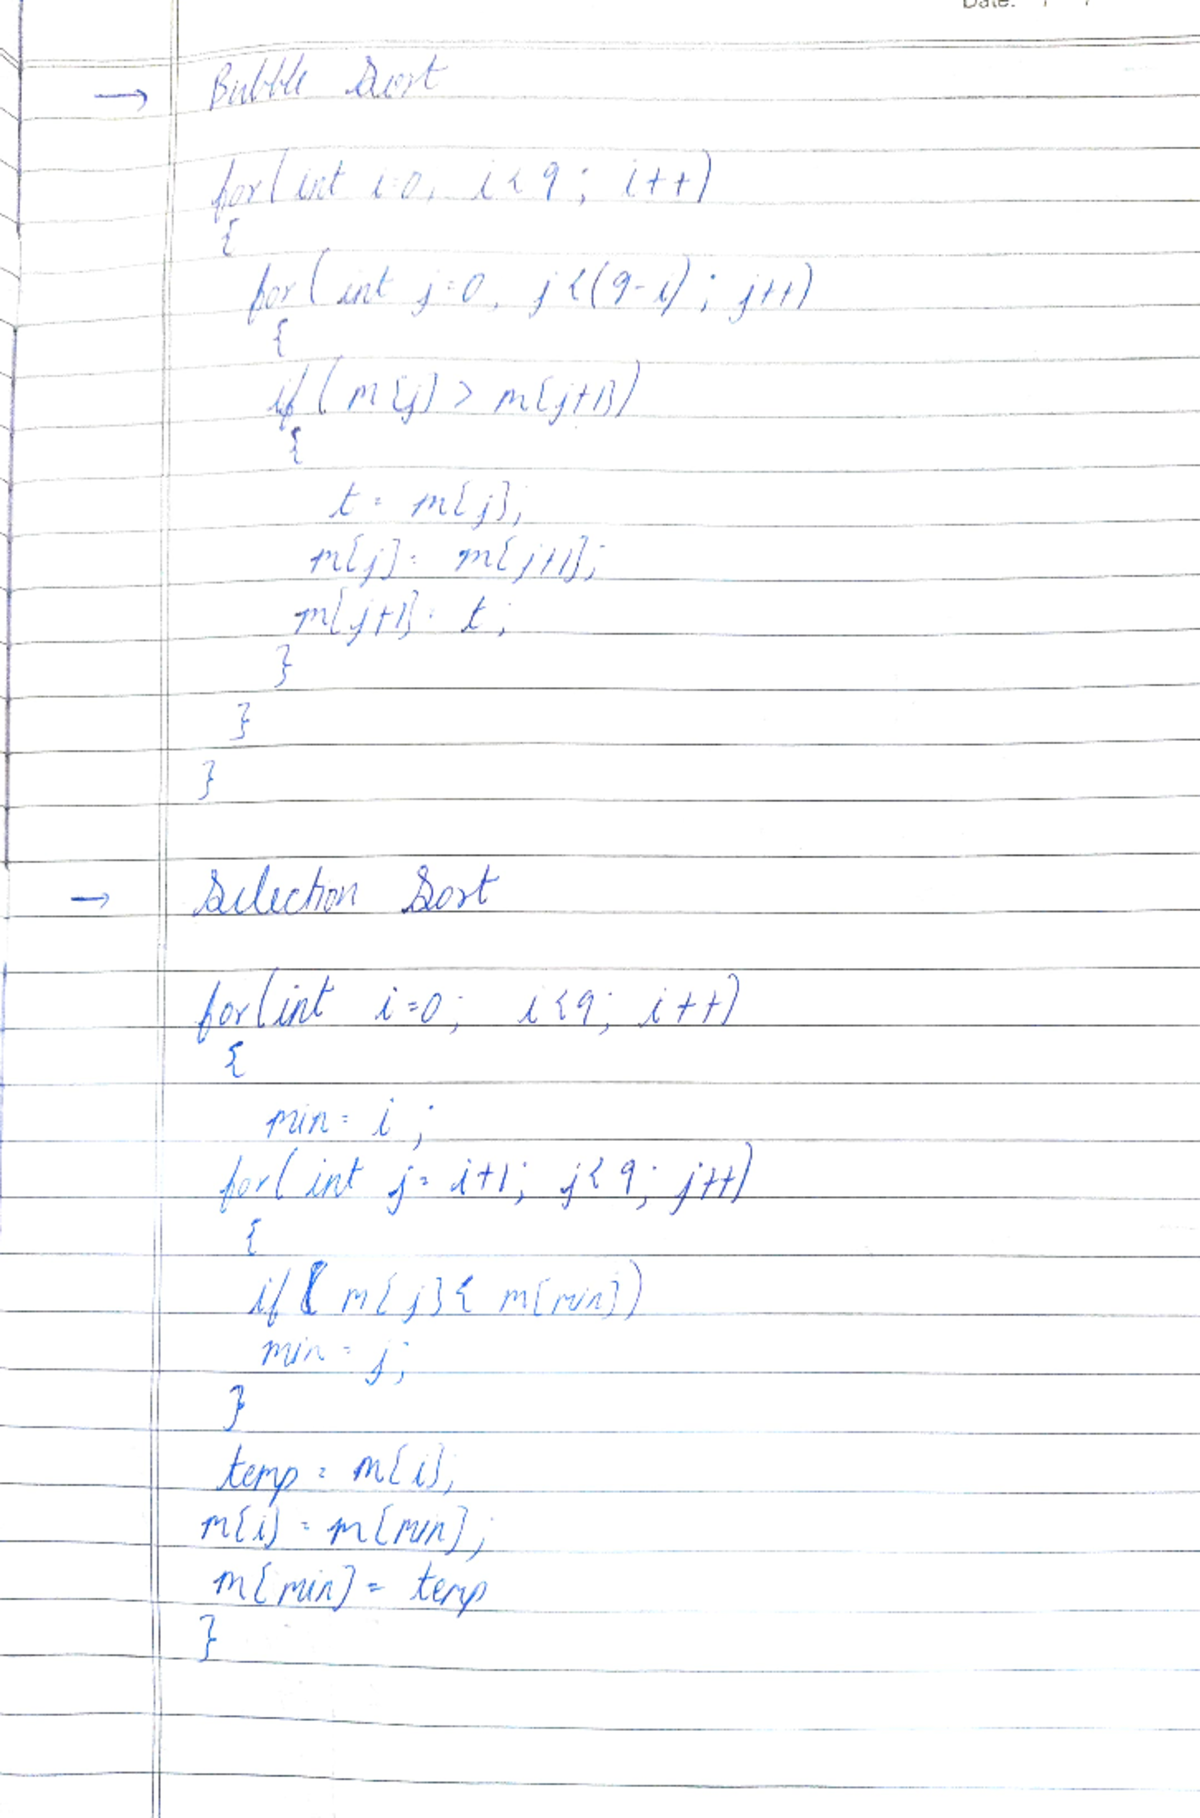 Date: / /
→ Bubble Sort
for(int i=0, i<9; i++)
{
for(int j=0, j<(9-i); j++)
{
if(m[j] > m[j+1])
{
t = m[j];
m[j] = m[j+1];
m[j+1] = t;
}
}
}
→ Selection Sort
for(int i=0; i<9; i++)
{
min = i;
for(int j = i+1; j<9; j++)
{
if(m[j] < m[min])
min = j;
}
temp = m[i];
m[i] = m[min];
m[min] = temp
}